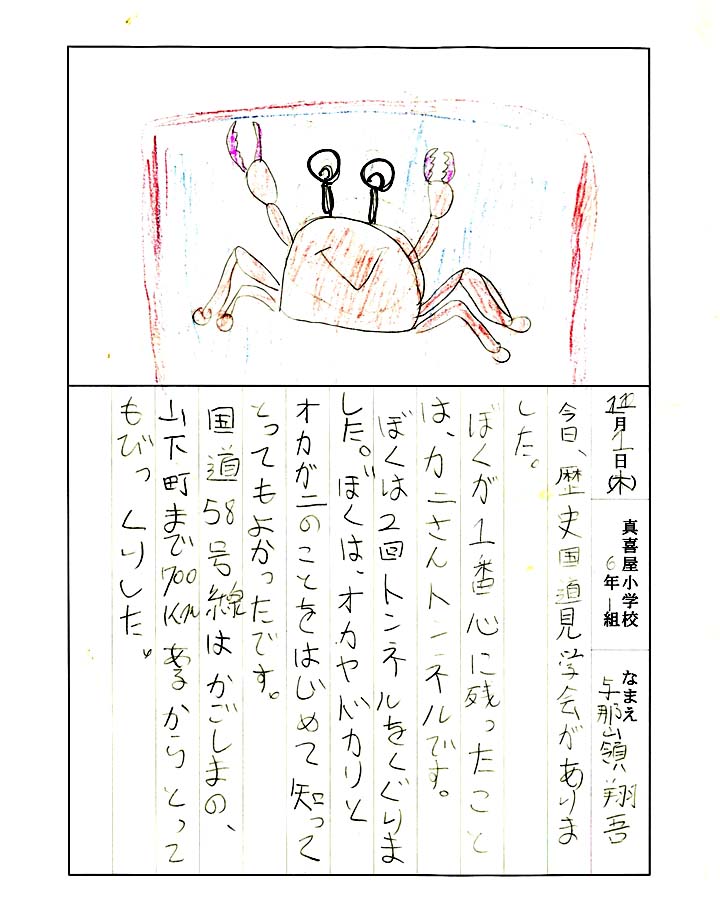 11月1日(木)
真喜屋小学校
6年1組
なまえ
与那嶺 翔吾
今日、歴史国道見学会がありま
した。
ぼくが1番心に残ったこと
は、カニさんトンネルです。
ぼくは2回トンネルをくぐりま
した。ぼくは、オカヤドカリと
オカガニのことをはじめて知って
とってもよかったです。
国道58号線はかごしまの、
山下町まで700Kmあるからとって
もびっくりした。